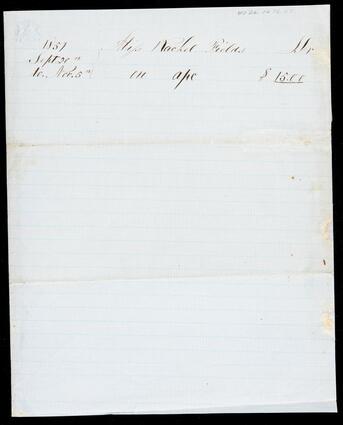 1857 Miss Rachel Fields Dr
Sept 20th
to Nov. 5th on apc $ 15.00